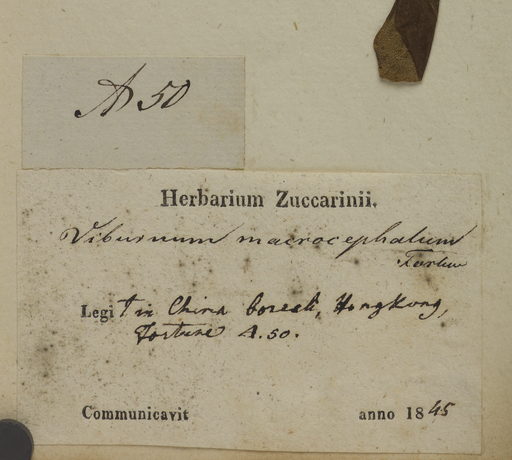 A 50
Herbarium Zuccarinii.
Viburnum macrocephalum
Fortune
Legit in China boreali, Hongkong,
Fortune A. 50.
Communicavit anno 1845